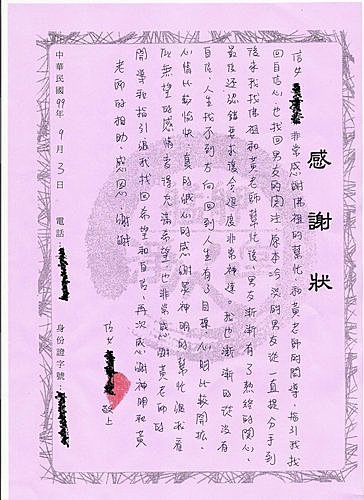 感謝狀
信女 非常感謝佛祖的幫忙和黃老師的開導,指引我找
回自信心,也找回男友的關注原本冷淡的男友從一直提分手到
後來我找佛祖和黃老師幫忙後,男友漸漸有了熱絡的關心,
最後還認錯要求復合進度非常神速。我也漸漸的從沒有
自信,人生找不到方向,回到人生有了目標,心胸比較開拓,
心情比較愉快。真的誠心的感謝眾神明的幫忙讓我看
似無望的感情變得充滿希望也非常感謝黃老師的
開導和指引讓我找回希望和自信,再次感謝神明和黃
老師的相助,感恩!謝謝
信女 敬上
中華民國99年9月3日 電話: 身份證字號: